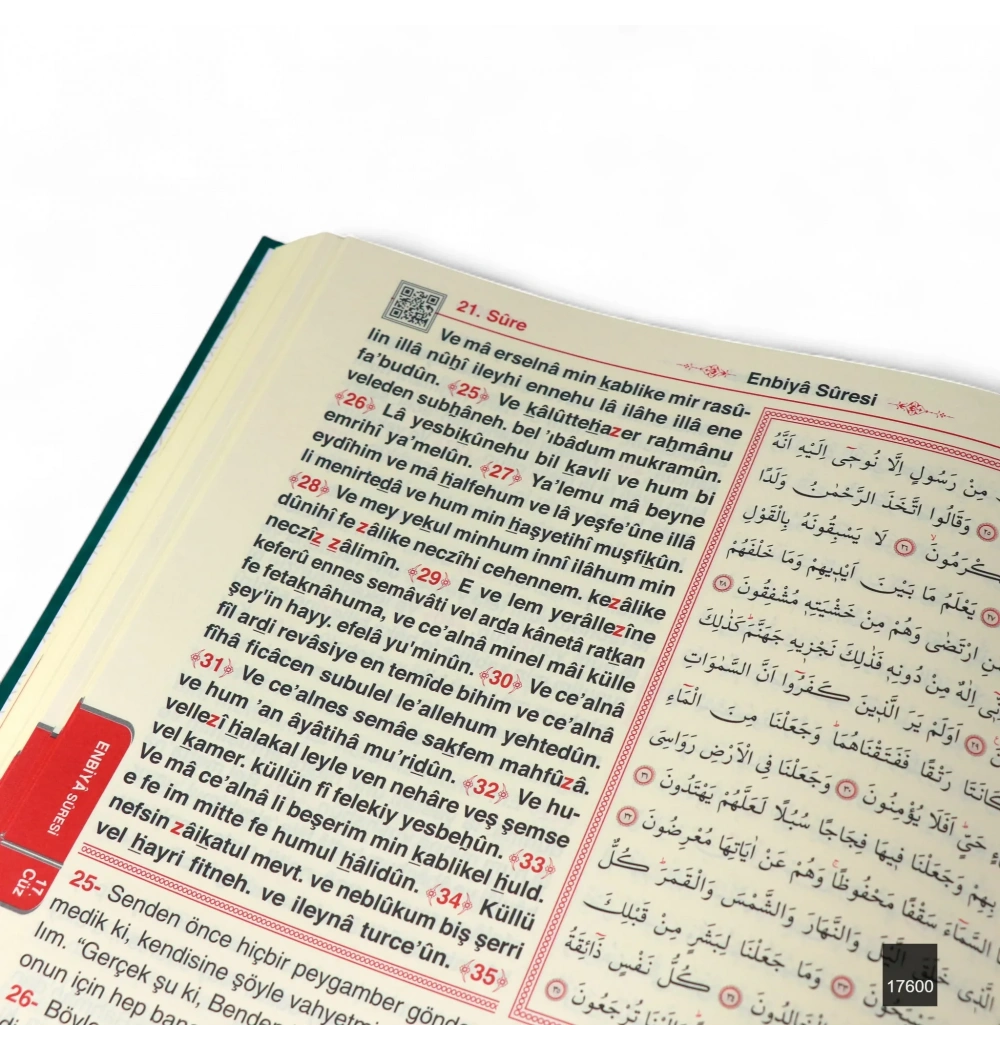 21. Sûre
Enbiyâ Sûresi
Ve mâ erselnâ min kablike mir rasû-
lin illâ nûhî ileyhi ennehu lâ ilâhe illâ ene
fa’budûn. ﴾25﴿ Ve kâlûttehazer rahmânu
veleden subhâneh. bel ’ıbâdum mukramûn.
﴾26﴿ Lâ yesbikûnehu bil kavli ve hum bi
emrihî ya’melûn. ﴾27﴿ Ya’lemu mâ beyne
eydîhim ve mâ halfehum ve lâ yeşfe’ûne illâ
li menirtedâ ve hum min haşyetihî muşfikûn.
﴾28﴿ Ve mey yekul minhum innî ilâhum min
dûnihî fe zâlike neczîhi cehennem. kezâlike
necziz zâlimîn. ﴾29﴿ E ve lem yerâllezîne
keferû ennes semâvâti vel arda kânetâ ratkan
fe fetaknâhuma, ve ce’alnâ minel mâi külle
şey’in hayy. efelâ yu’minûn. ﴾30﴿ Ve ce’alnâ
fîl ardi revâsiye en temîde bihim ve ce’alnâ
fîhâ ficâcen subulel le’allehum yehtedûn.
﴾31﴿ Ve ce’alnes semâe sakfem mahfûzâ.
ve hum ’an âyâtihâ mu’ridûn. ﴾32﴿ Ve hu-
vellezî halakal leyle ven nehâre veş şemse
vel kamer. küllün fî felekiy yesbehûn. ﴾33﴿
Ve mâ ce’alnâ li beşerim min kablikel huld.
e fe im mitte fe humul hâlidûn. ﴾34﴿ Küllü
nefsin zâikatul mevt. ve neblûkum biş şerri
vel hayri fitneh. ve ileynâ turce’ûn. ﴾35﴿
25- Senden önce hiçbir peygamber gönde
medik ki, kendisine şöyle vahyetmi
lım. “Gerçek şu ki, Benden
onun için hep bana
26- Böyle
ENBİYÂ SÛRESİ
17.
Cüz
مِنْ رَسُولٍ اِلَّا نُوحٖٓى اِلَيْهِ اَنَّهُ
﴿٢٥﴾ وَقَالُوا اتَّخَذَ الرَّحْمٰنُ وَلَدًا
﴿٢٦﴾ لَا يَسْبِقُونَهُ بِالْقَوْلِ
﴿٢٧﴾ يَعْلَمُ مَا بَيْنَ اَيْدٖيهِمْ وَمَا خَلْفَهُمْ
ارْتَضٰى وَهُمْ مِنْ خَشْيَتِهٖ مُشْفِقُونَ ﴿٢٨﴾
اِلٰهٌ مِنْ دُونِهٖ فَذٰلِكَ نَجْزٖيهِ جَهَنَّمَ كَذٰلِكَ
﴿٢٩﴾ اَوَلَمْ يَرَ الَّذٖينَ كَفَرُٓوا اَنَّ السَّمٰوَاتِ
كَانَتَا رَتْقًا فَفَتَقْنَاهُمَا وَجَعَلْنَا مِنَ الْمَٓاءِ
حَيٍّ اَفَلَا يُؤْمِنُونَ ﴿٣٠﴾ وَجَعَلْنَا فِى الْاَرْضِ رَوَاسِىَ
بِهِمْ وَجَعَلْنَا فٖيهَا فِجَاجًا سُبُلًا لَعَلَّهُمْ يَهْتَدُونَ ﴿٣١﴾
السَّمَٓاءَ سَقْفًا مَحْفُوظًا وَهُمْ عَنْ اٰيَاتِهَا مُعْرِضُونَ ﴿٣٢﴾
الَّذٖى خَلَقَ الَّيْلَ وَالنَّهَارَ وَالشَّمْسَ وَالْقَمَرَ كُلٌّ
﴿٣٣﴾ وَمَا جَعَلْنَا لِبَشَرٍ مِنْ قَبْلِكَ
﴿٣٤﴾ كُلُّ نَفْسٍ ذَٓائِقَةُ
تُرْجَعُونَ ﴿٣٥﴾
17600